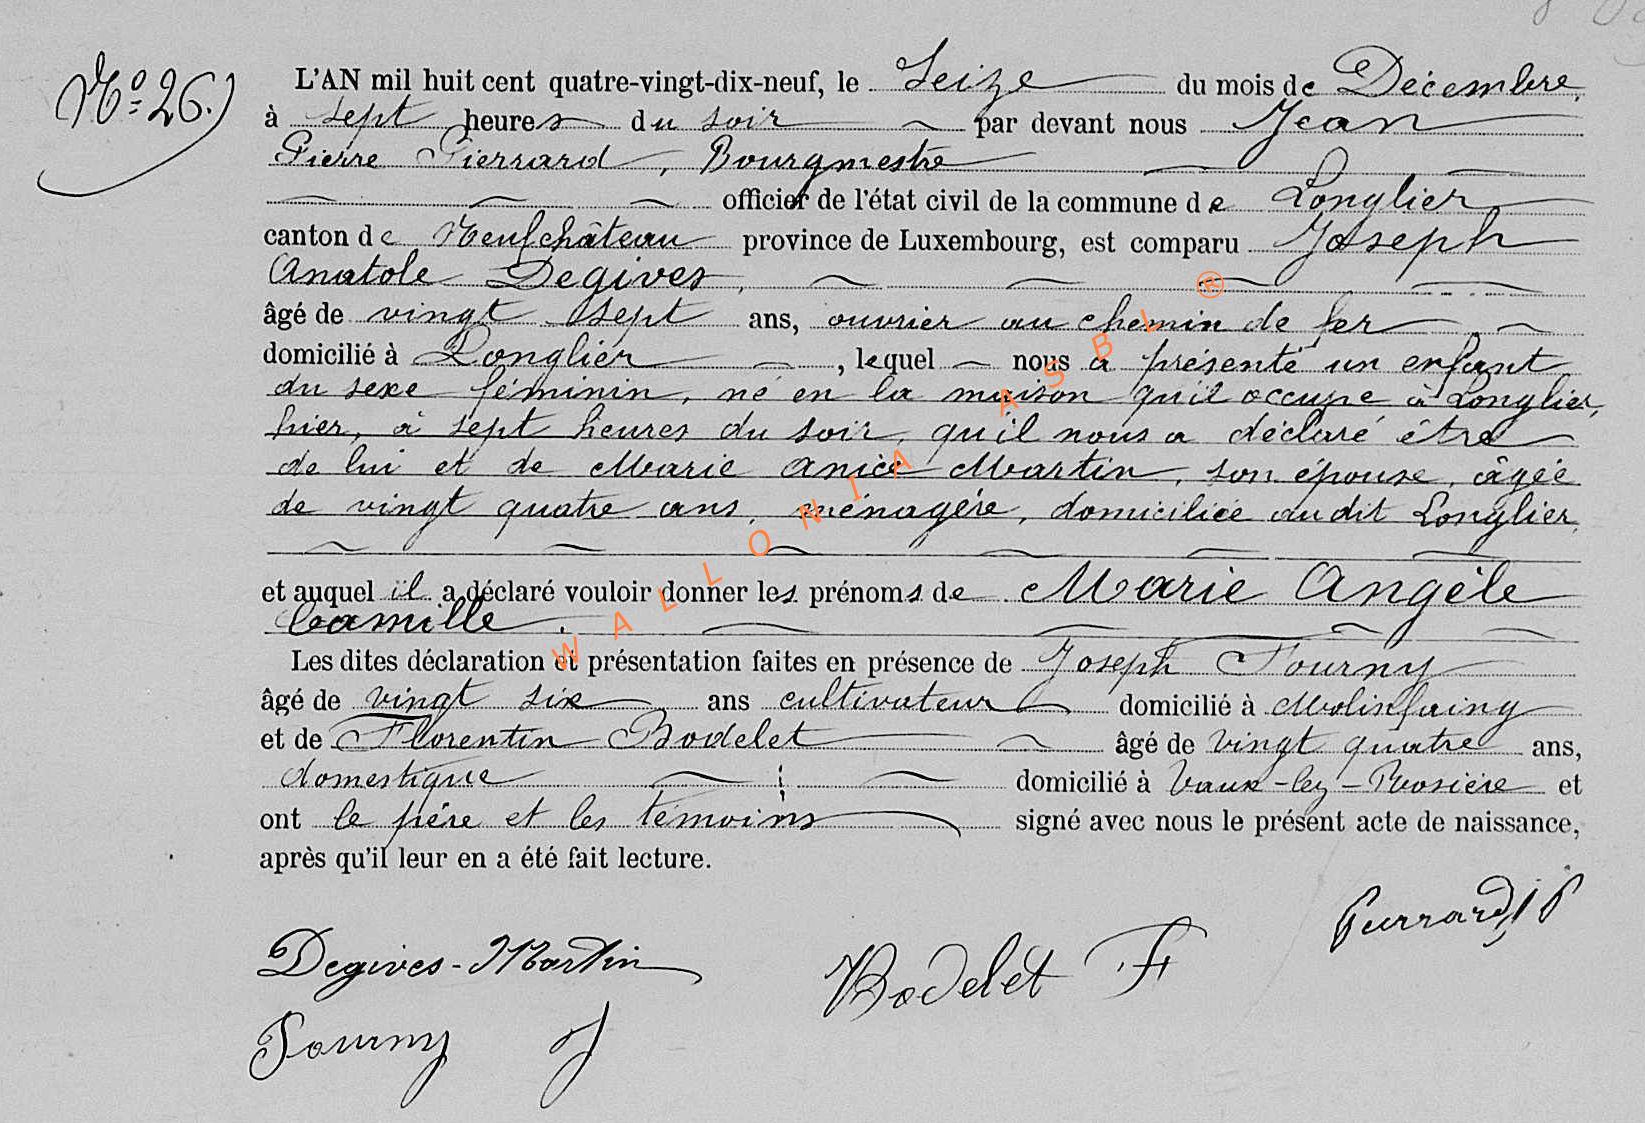 Nº 26.)
L'AN mil huit cent quatre-vingt-dix-neuf, le Seize du mois de Décembre,
à sept heures du soir par devant nous Jean
Pierre Pierrard, Bourgmestre
officier de l'état civil de la commune de Longlier
canton de Neufchâteau province de Luxembourg, est comparu Joseph
Anatole Degives,
âgé de vingt sept ans, ouvrier au chemin de fer
domicilié à Longlier, lequel nous a présenté un enfant
du sexe féminin, né en la maison qu'il occupe à Longlier,
hier, à sept heures du soir, qu'il nous a déclaré être
de lui et de Marie Anice Martin, son épouse, âgée
de vingt quatre ans, ménagère, domiciliée audit Longlier,
et auquel il a déclaré vouloir donner les prénoms de Marie Angèle
Camille.
Les dites déclaration et présentation faites en présence de Joseph Fourny
âgé de vingt six ans cultivateur domicilié à Molinfaing
et de Florentin Bodelet âgé de vingt quatre ans,
domestique domicilié à Vaux-lez-Rosière et
ont le père et les témoins signé avec nous le présent acte de naissance,
après qu'il leur en a été fait lecture.
Pierrard J P
Degives-Martin
Bodelet F
Fourny J
WALLONIA ASBL ®